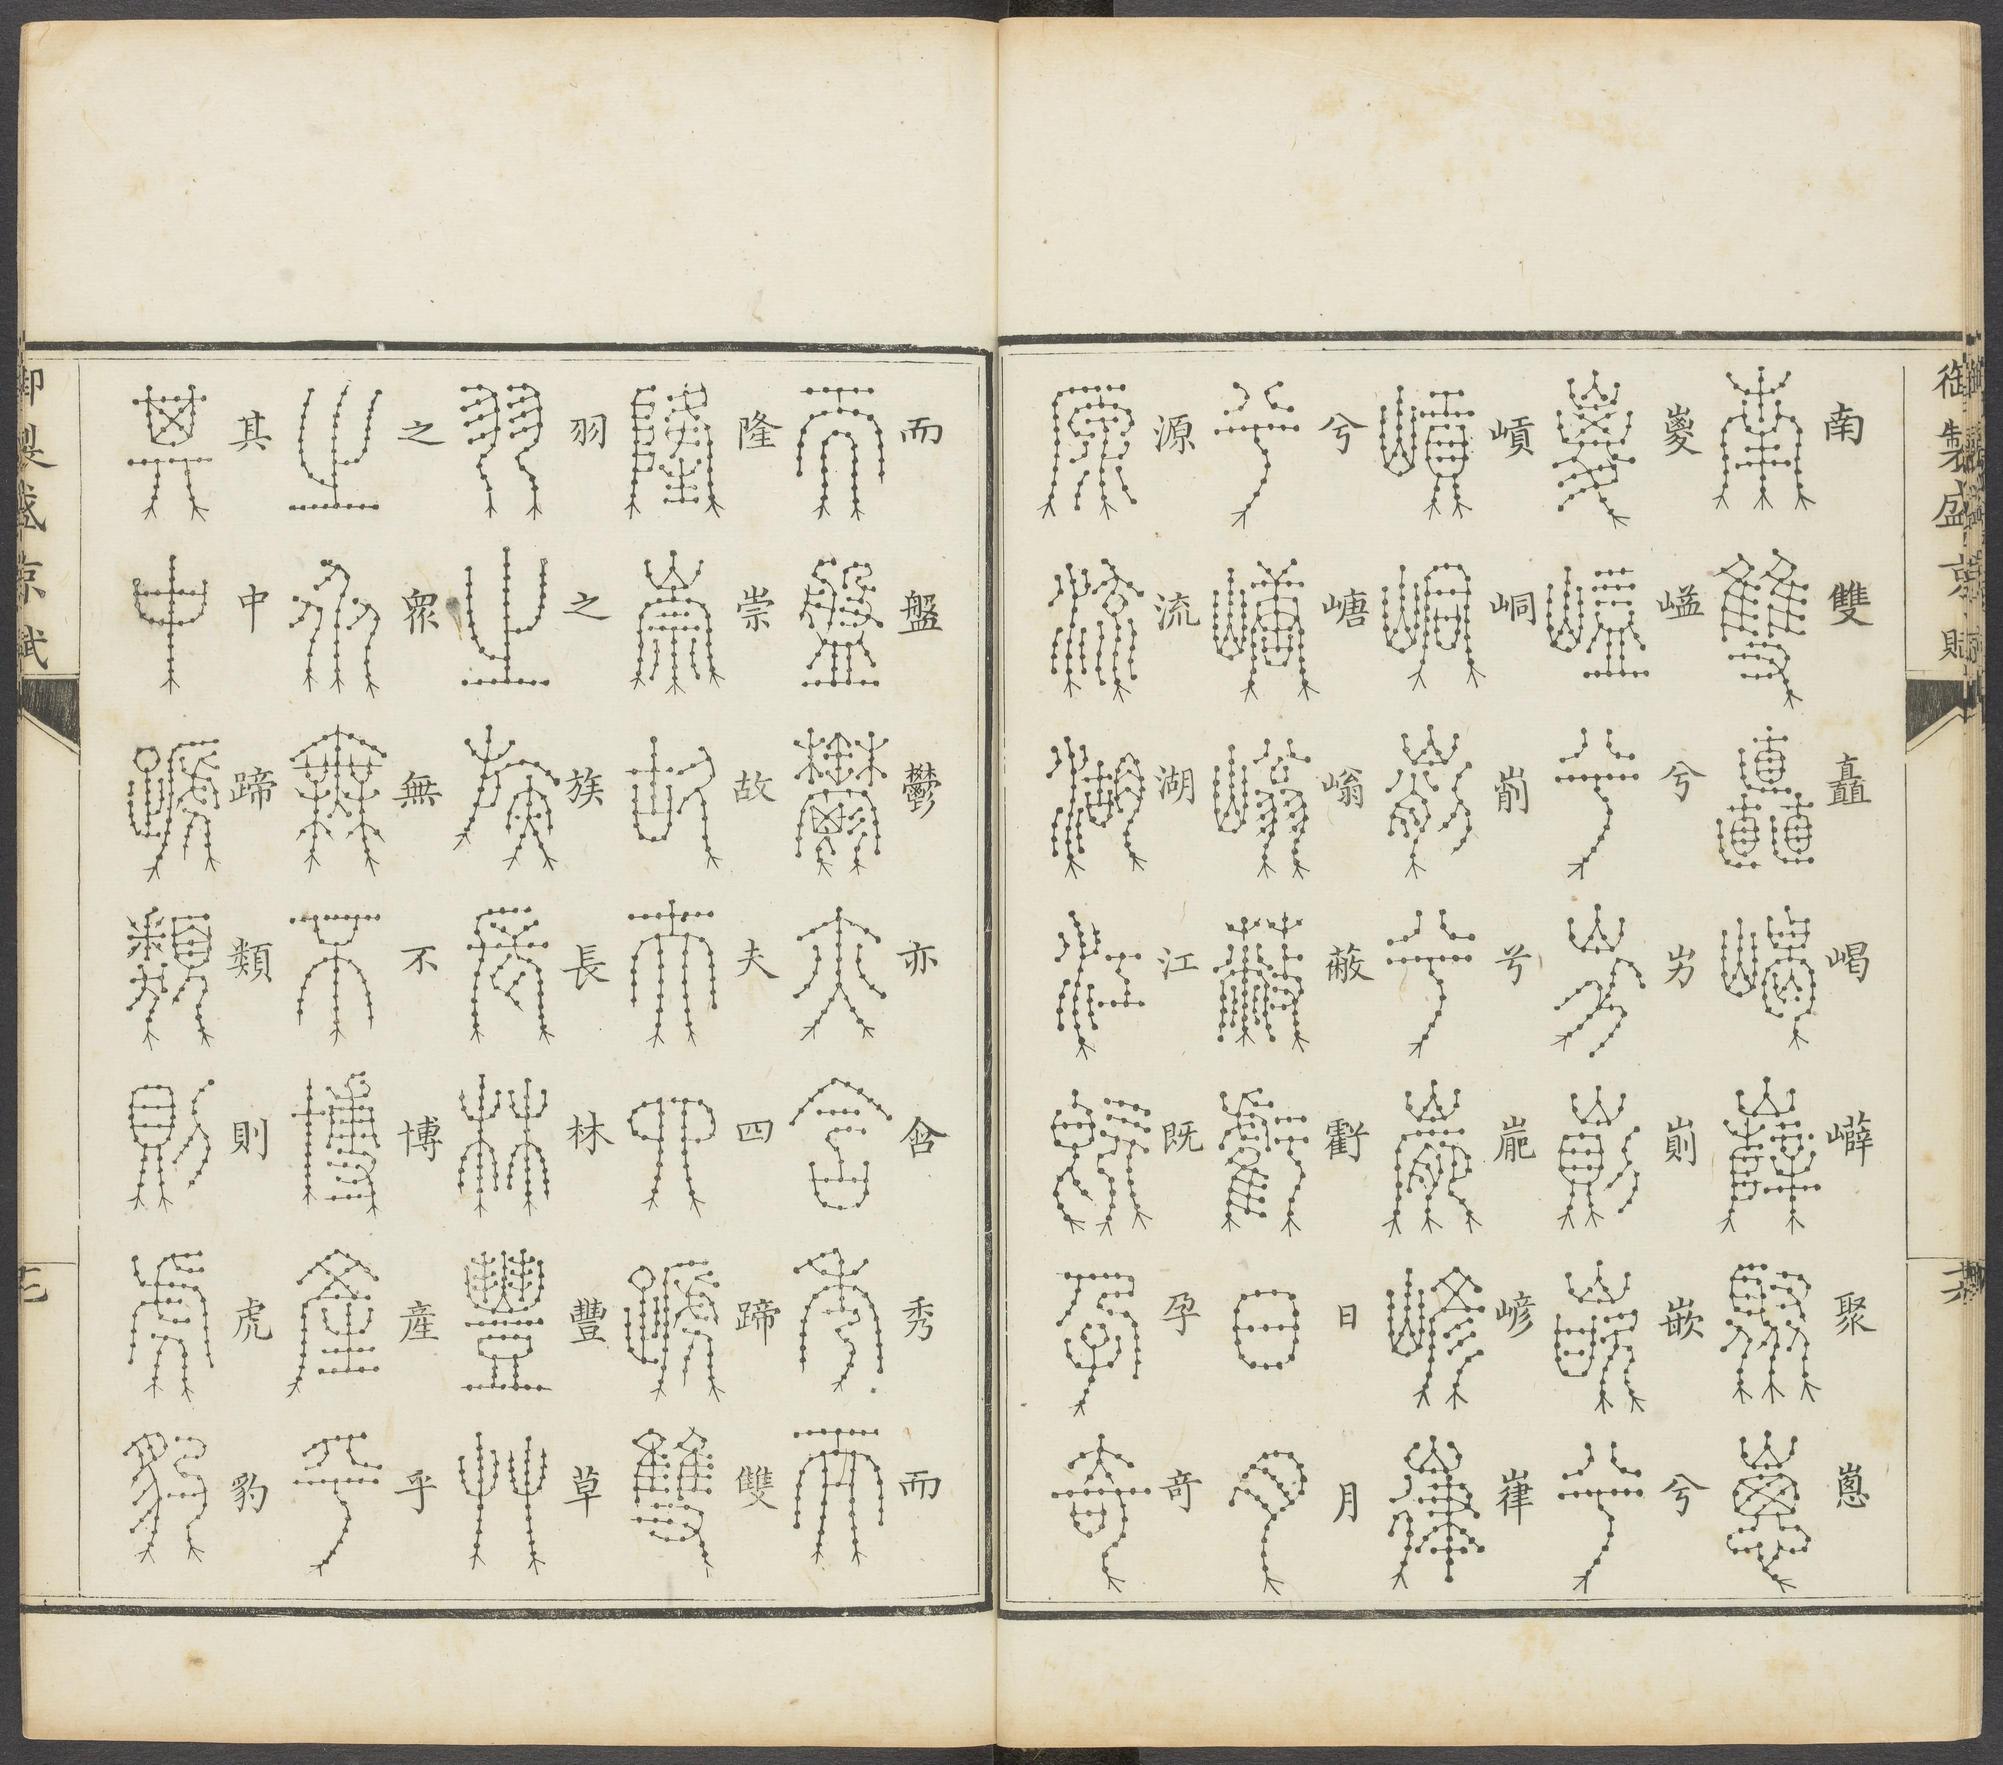 御製盛京賦
南雙矗嵑嶭聚
嵏兮屴崱嵌兮
峒兮嵃嵂
兮嵣嵡蔽虧日月
源流湖江既孕奇
而盤鬱亦含秀而
隆崇故夫四蹄雙
羽之族長林豐草
之衆無不博產乎
其中蹄類則虎豹
御製盛京賦